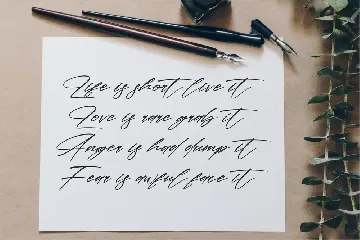 Life is short live it
Love is rare grab it
Anger is bad dump it
Fear is awful face it